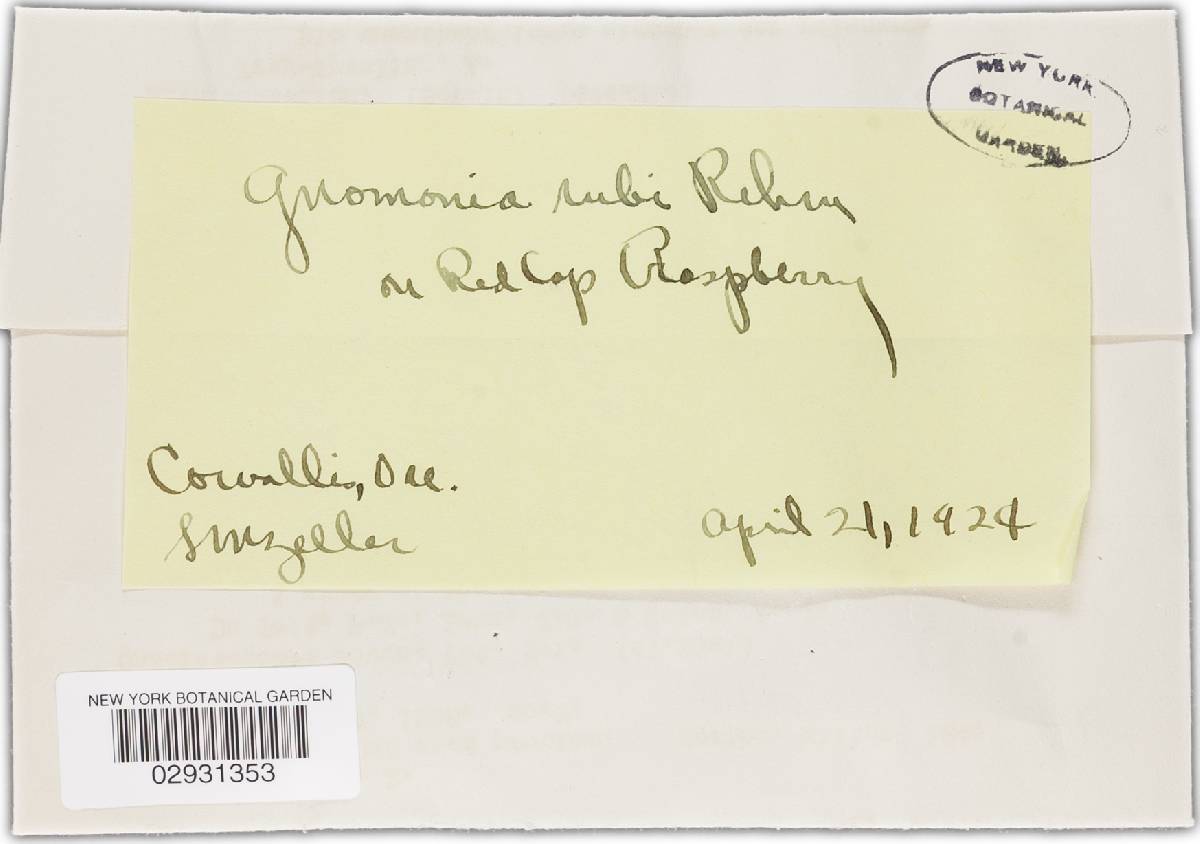 NEW YORK
BOTANICAL
GARDEN
Gnomonia rubi Rehm
on Red Cap Raspberry
Corvallis, Ore.
S M Zeller
April 21, 1924
NEW YORK BOTANICAL GARDEN
02931353